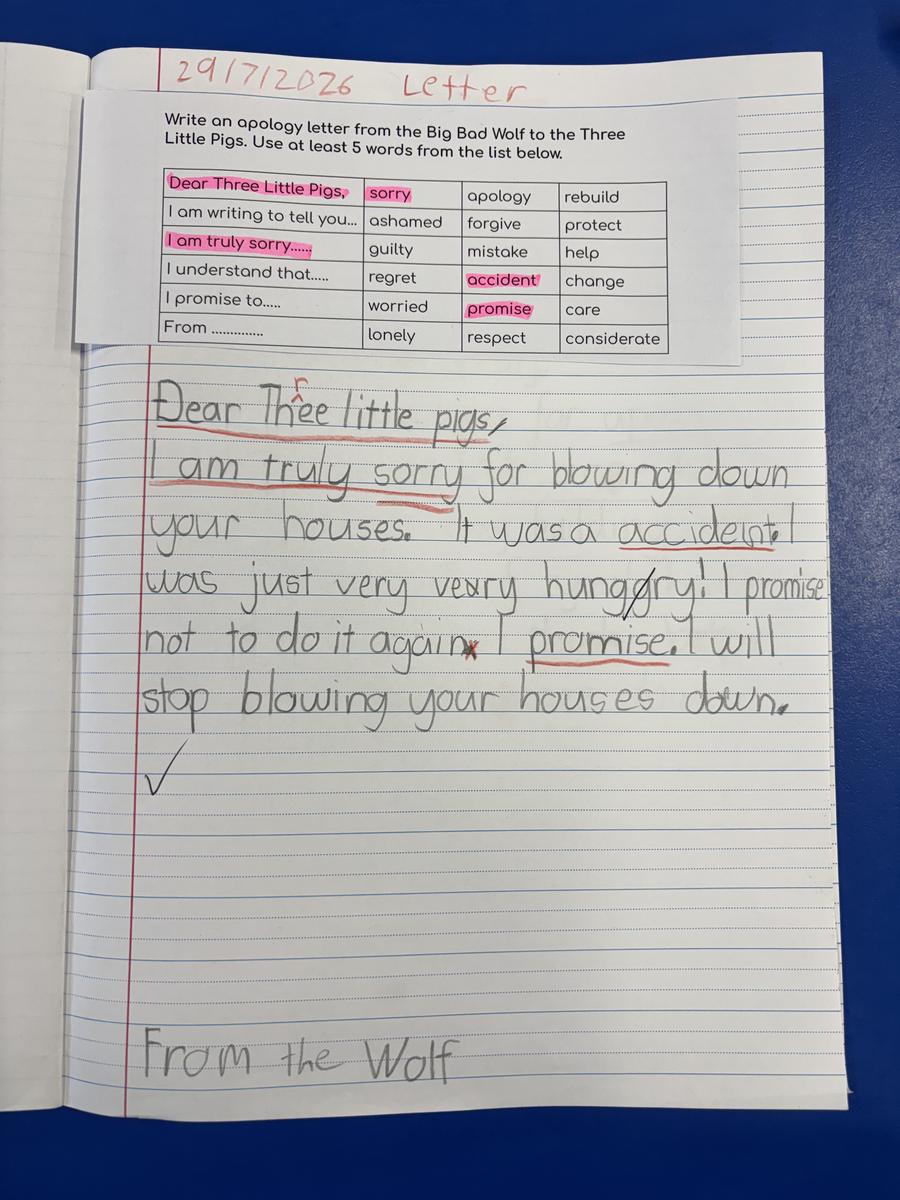 29/7/2026 Letter
Write an apology letter from the Big Bad Wolf to the Three
Little Pigs. Use at least 5 words from the list below.
Dear Three Little Pigs, sorry apology rebuild
I am writing to tell you... ashamed forgive protect
I am truly sorry...... guilty mistake help
I understand that..... regret accident change
I promise to..... worried promise care
From .............. lonely respect considerate
Dear Three little pigs,
I am truly sorry for blowing down
your houses. It was a accident. I
was just very very hungry! I promise
not to do it again. I promise. I will
stop blowing your houses down.
From the Wolf